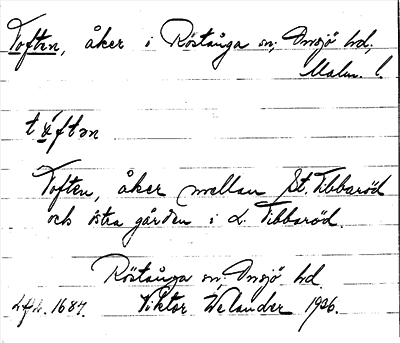 Toften, åker i Röstånga sn, Onsjö hd,
Malm. l.
Toften, åker mellan St. Tibbaröd
och östra gården i L. Tibbaröd.
Röstånga sn, Onsjö hd.
Viktor Welander 1926.